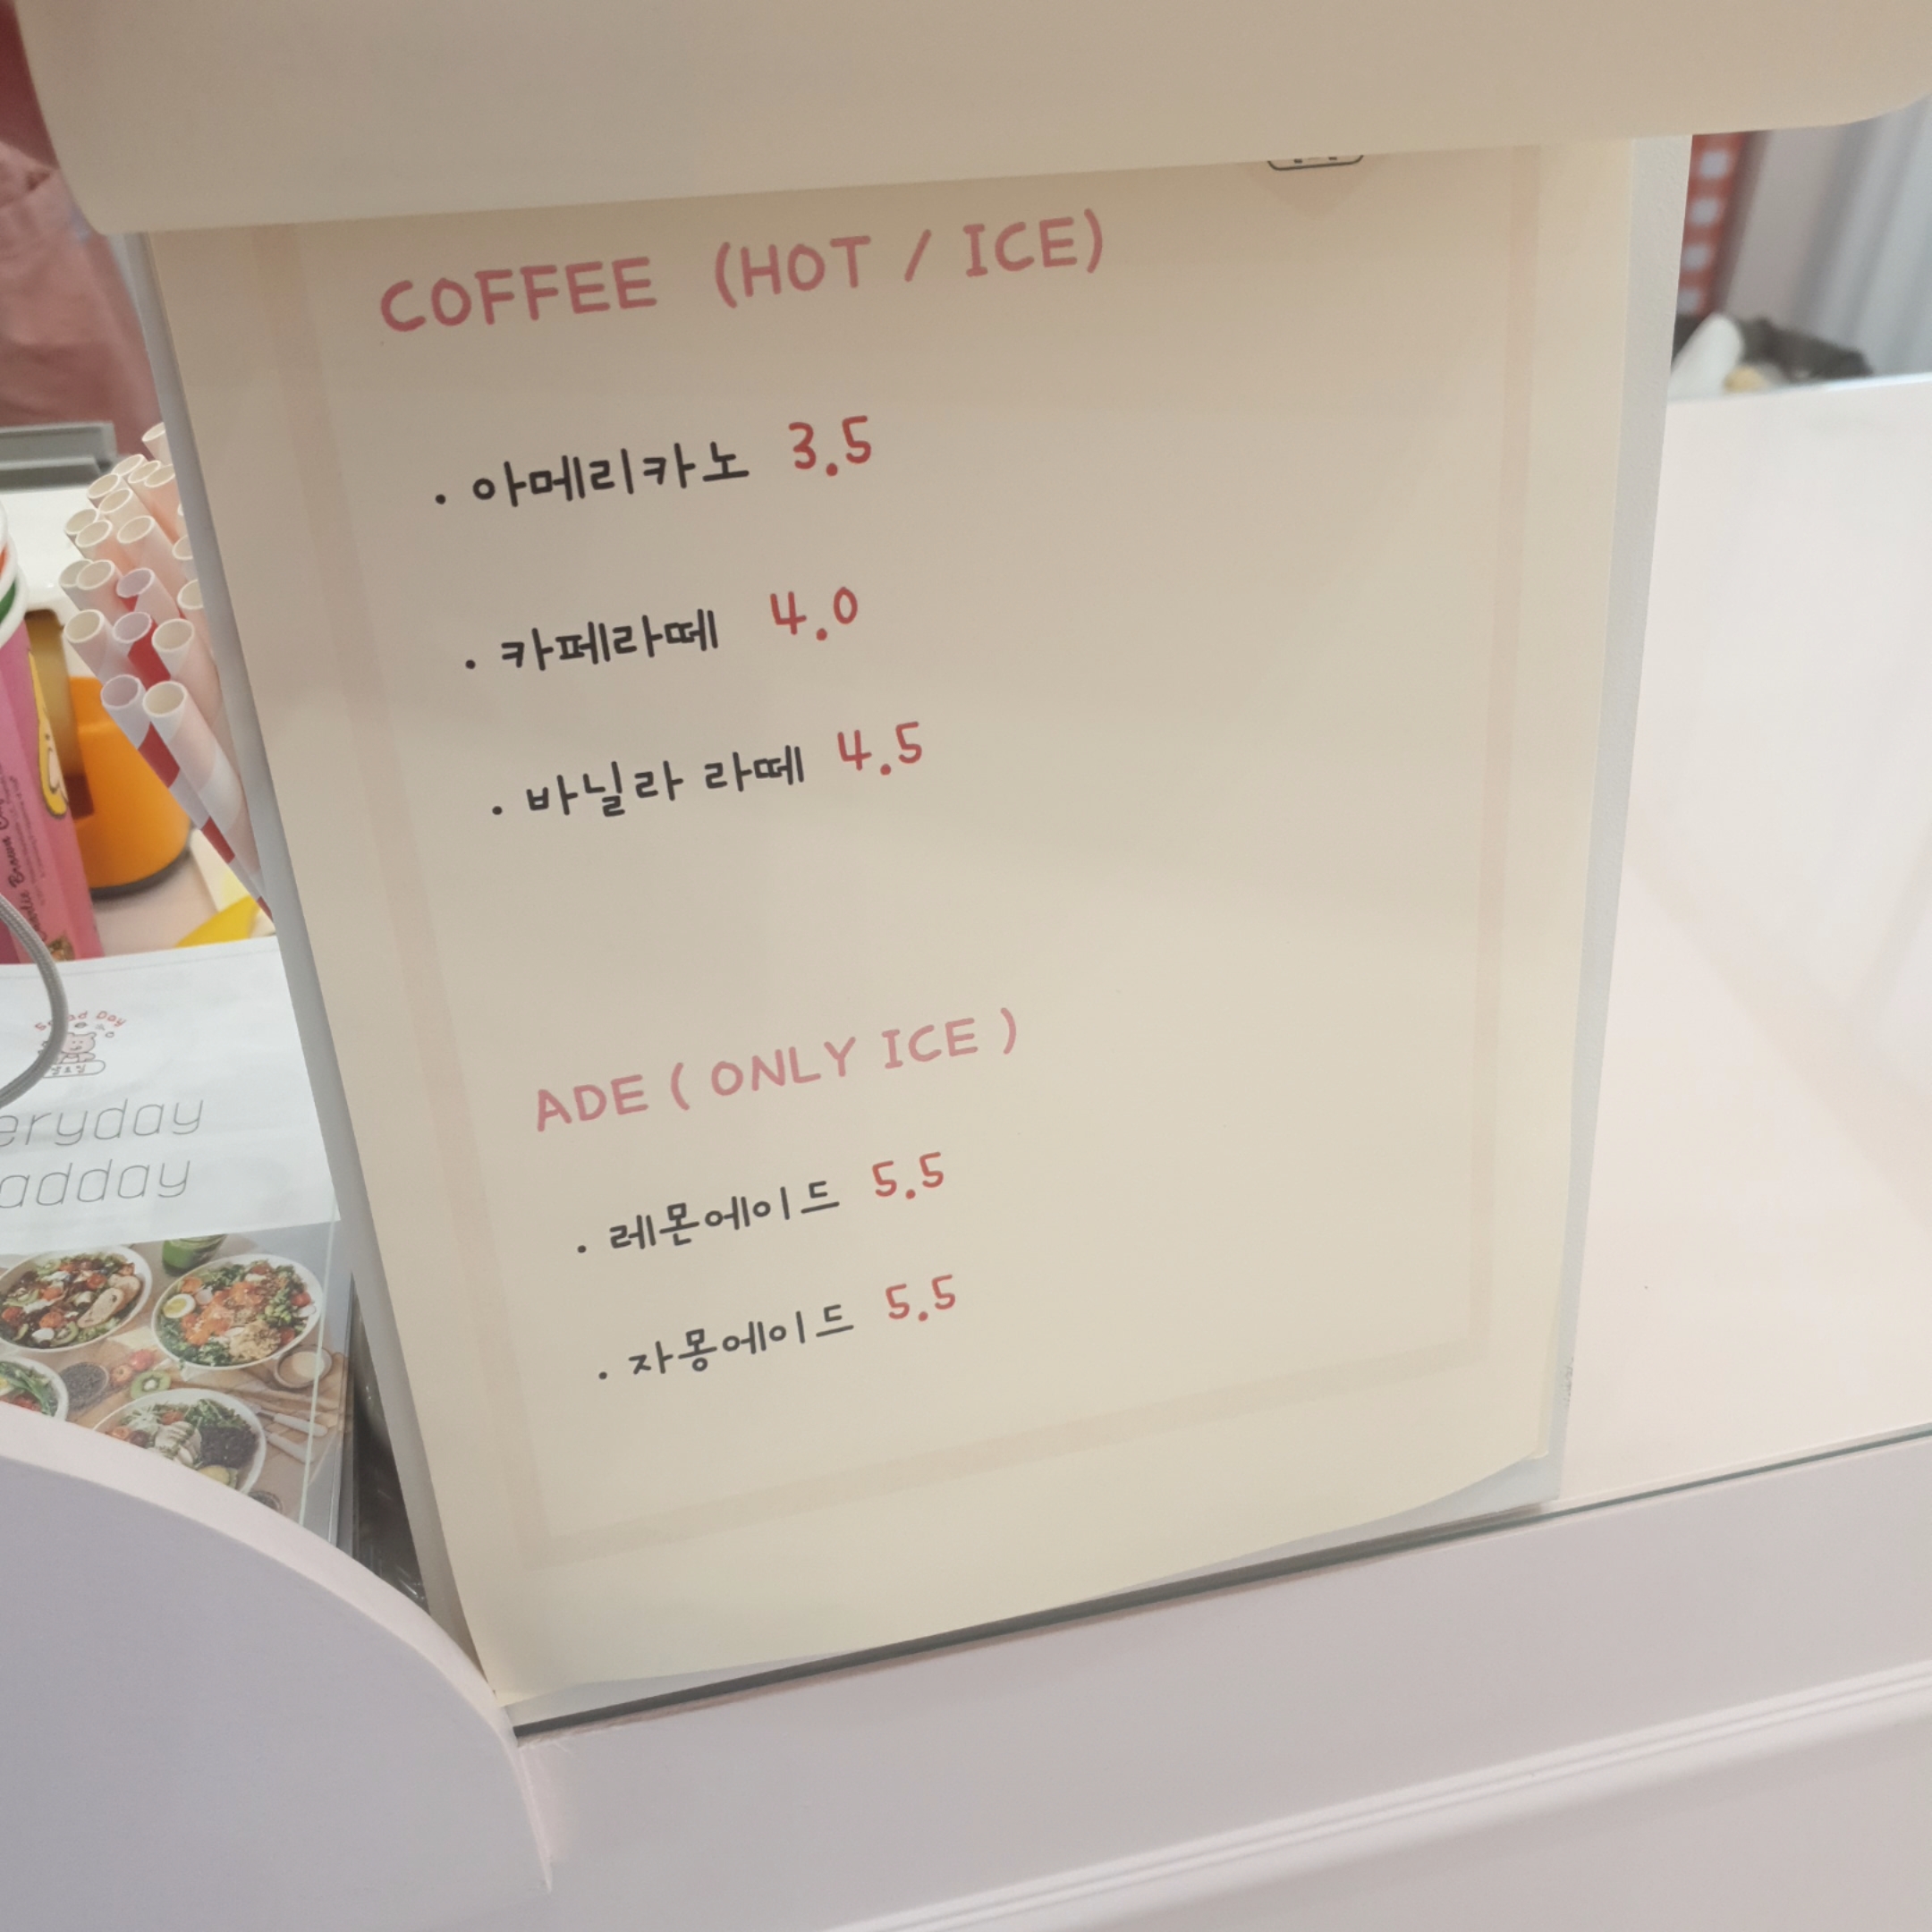 COFFEE (HOT / ICE)
· 아메리카노 3.5
· 카페라떼 4.0
· 바닐라 라떼 4.5
ADE ( ONLY ICE )
· 레몬에이드 5.5
· 자몽에이드 5.5
Day
eryday
adday